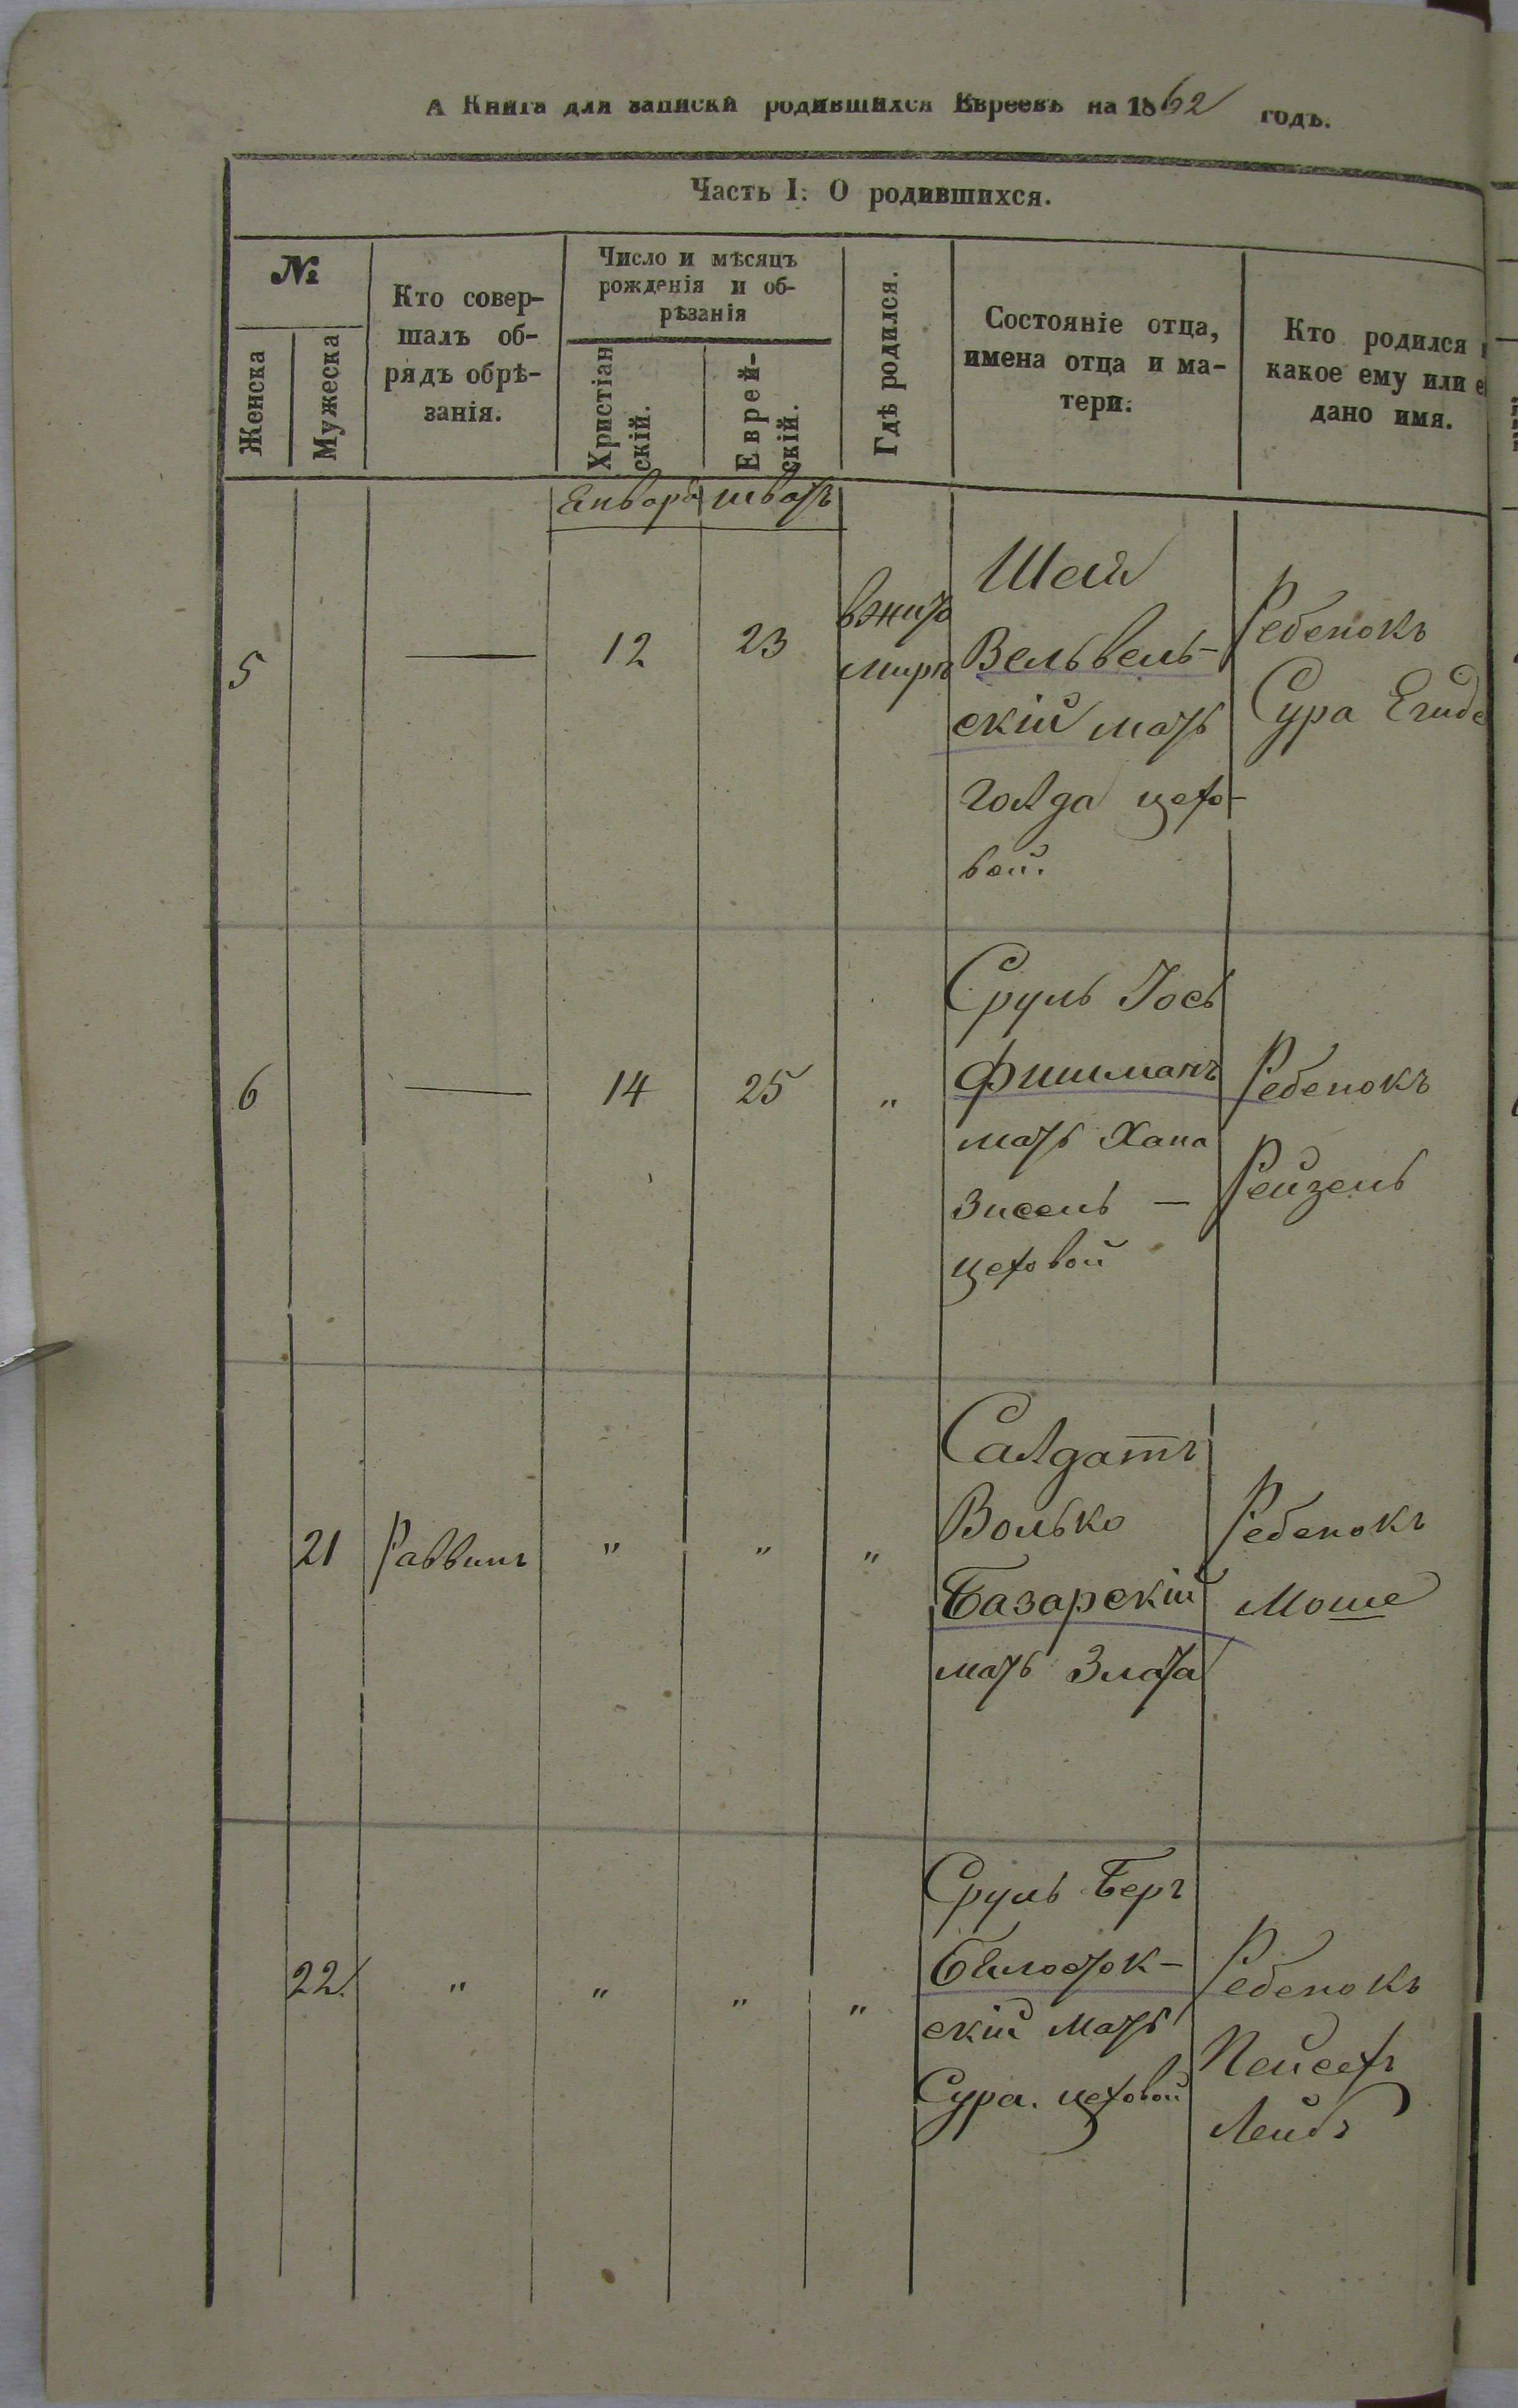 А Книга для записки родившихся Евреевъ на 1862 годъ.
Часть I. О родившихся.
№
Женска
Мужеска
Кто совер-
шалъ об-
рядъ обрѣ-
занія.
Число и мѣсяцъ
рожденія и об-
рѣзанія
Христіан
скій.
Еврей-
скій.
Гдѣ родился.
Состояніе отца,
имена отца и ма-
тери.
Кто родился
какое ему или
дано имя.
Енваря
шватъ
5
—
12
23
вжито
мирѣ
Шая
Вельвель-
скій мать
Голда цехо-
вой.
Ребенокъ
Сура
6
—
14
25
"
Сруль Іось
Фишманъ
мать Хана
Зисель —
цеховой
Ребенокъ
Рейзель
21
Раввинъ
"
"
"
Салдатъ
Волько
Базарскій
мать Злата
Ребенокъ
Моше
22.
"
"
"
"
Сруль Беръ
Бѣлосток-
скій мать
Сура. цеховой
Ребенокъ
Пейсехъ
Лейбъ